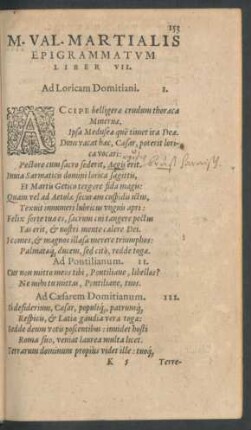 153
M. VAL. MARTIALIS
EPIGRAMMATVM
LIBER VII.
Ad Loricam Domitiani. I.
ACCIPE belligeræ crudum thoraca
Minervæ,
Ipsa Medusææ quē timet ira Deæ.
Dum vacat hæc, Cæsar, poterit lori-
ca vocari:
Pectore cum sacro sederit, Aegis erit.
Invia Sarmaticis domini lorica sagittis,
Et Martis Getico tergore fida magis:
Quam vel ad Aetolæ securam cuspidis ictus,
Texuit innumeri lubricus ungvis apri:
Felix sorte tua es, sacrum cui tangere pectus
Fas erit, & nostri mente calere Dei.
I comes, & magnos illæsa merere triumphos:
Palmatæq́, ducem, sed citò, redde togæ.
Ad Pontilianum. II.
Cur non mitto meos tibi, Pontiliane, libellos?
Ne mihi tu mittas, Pontiliane, tuos.
Ad Cæsarem Domitianum. III.
Si desiderium, Cæsar, populiq́, patrumq́,
Respicis, & Latiæ gaudia vera togæ:
Redde deum votis poscentibus: invidet hosti
Roma suo, veniat laurea multa licet.
Terrarum dominum propius videt ille: tuoq́,
K 5 Terre-